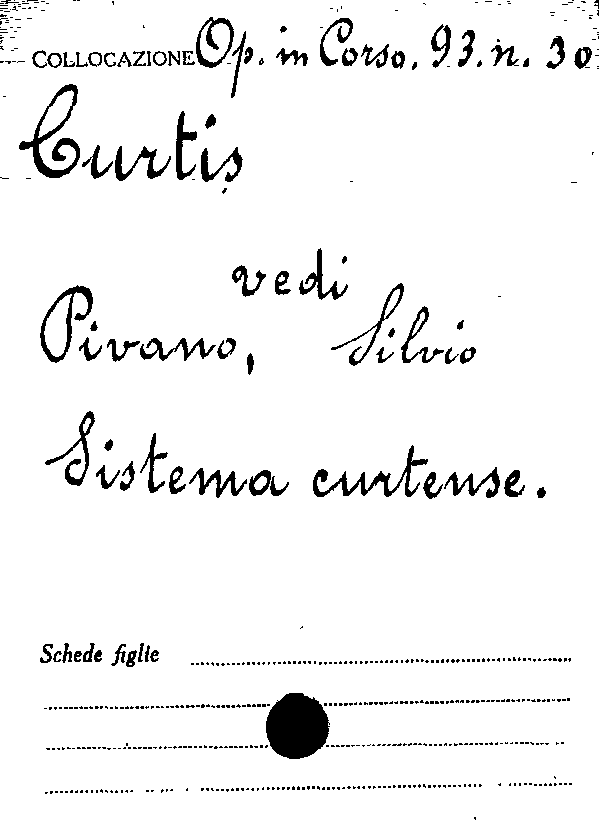 COLLOCAZIONE Op. in Corso. 93. n. 30
Curtis
vedi
Pivano, Silvio
Sistema curtense.
Schede figlie